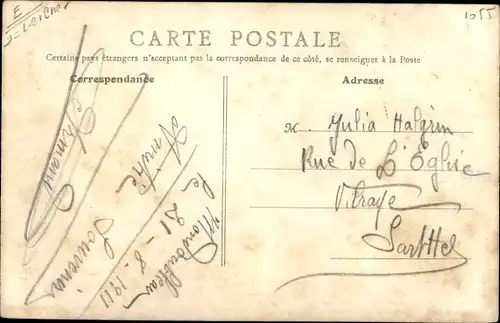 E
CARTE POSTALE
Certains pays étrangers n'acceptent pas la correspondance de ce côté, se renseigner à la Poste
Correspondance
Adresse
Amitié
Souvenir
le
21 - 8 - 1911
M. Julia Halgrin
Rue de L'Eglise
Vibraye
Sarthe